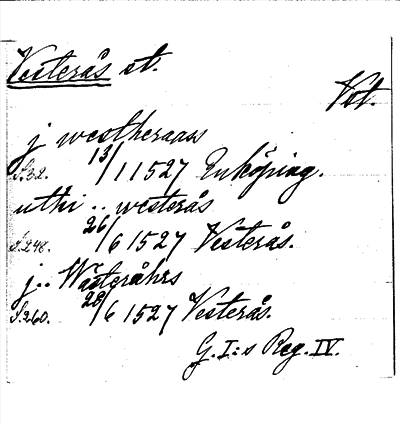 Vesterås st.
Vst.
j westheraas
S.32. 13/1 1527 Enköping.
uthi .. westerås
S.248. 26/6 1527 Vesterås.
j.. Wästeråhrs
S.260. 28/6 1527 Vesterås.
G. I:s Reg. IV.